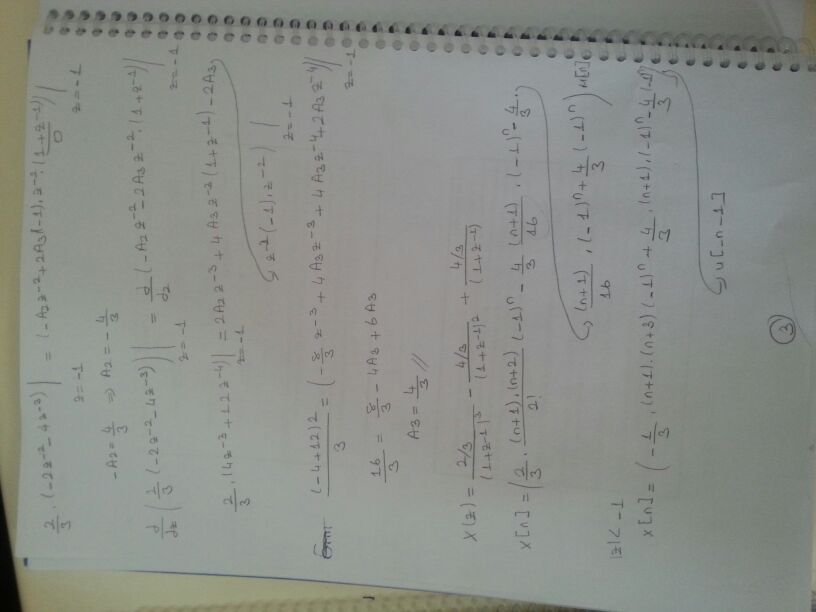 2/3 . (-2z^-2 - 4z^-3) |z=-1 = (-A2z^-2 + 2A3(-1).z^-2.(1+z^-1)) |z=-1
0
-A2 = 4/3 => A2 = -4/3
d/dz (1/3 (-2z^-2 - 4z^-3)) |z=-1 = d/dz (-A2z^-2 - 2A3z^-2.(1+z^-1)) |z=-1
2/3 . (4z^-3 + 12z^-4) |z=-1 = 2A2z^-3 + 4A3z^-3(1+z^-1) - 2A3
z^-2(-1).z^-2) |z=-1
(-4+12)2/3 = (-8/3 z^-3 + 4A3z^-3 + 4A3z^-4 + 2A3z^-4) |z=-1
16/3 = 8/3 - 4A3 + 6A3
A3 = 4/3 //
X(z) = 2/3/(1+z^-1)^3 - 4/3/(1+z^-1)^2 + 4/3/(1+z^-1)
x[n] = (2/3 . (n+1).(n+2)/2! (-1)^n - 4/3 (n+1)/16 . (-1)^n - 4/3 .
(n+1)/16 . (-1)^n + 4/3 (-1)^n) u[n]
|z| < -1
x[n] = (-1/3 . (n+1).(n+3) (-1)^n + 4/3 . (n+1).(-1)^n - 4/3 (-1)^n)
u[-n-1]
3